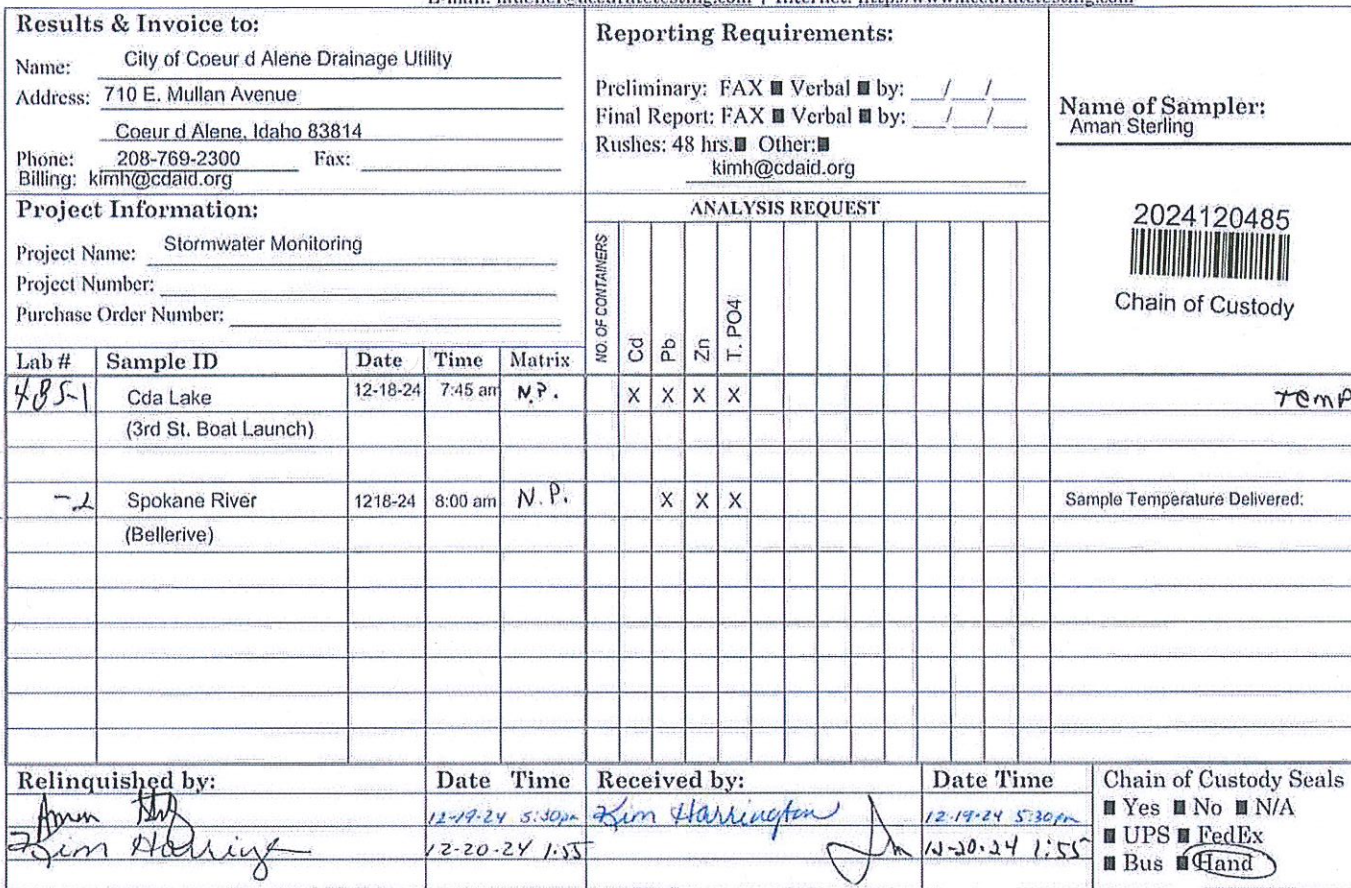 Results & Invoice to:
Name: City of Coeur d Alene Drainage Utility
Address: 710 E. Mullan Avenue
Coeur d Alene, Idaho 83814
Phone: 208-769-2300 Fax:
Billing: kimh@cdaid.org
Reporting Requirements:
Preliminary: FAX Verbal by: / /
Final Report: FAX Verbal by: / /
Rushes: 48 hrs. Other:
kimh@cdaid.org
Name of Sampler:
Aman Sterling
Project Information:
Project Name: Stormwater Monitoring
Project Number:
Purchase Order Number:
ANALYSIS REQUEST
2024120485
Chain of Custody
Lab # Sample ID Date Time Matrix NO. OF CONTAINERS Cd Pb Zn T. PO4
485-1 Cda Lake 12-18-24 7:45 am N.P. X X X X Temp
(3rd St. Boat Launch)
-2 Spokane River 1218-24 8:00 am N.P. X X X Sample Temperature Delivered:
(Bellerive)
Relinquished by: Date Time Received by: Date Time Chain of Custody Seals
12-19-24 5:30pm Kim Harrington 12-19-24 5:30pm Yes No N/A
Kim 12-20-24 1:55 12-20-24 1:55 UPS FedEx
Bus Hand